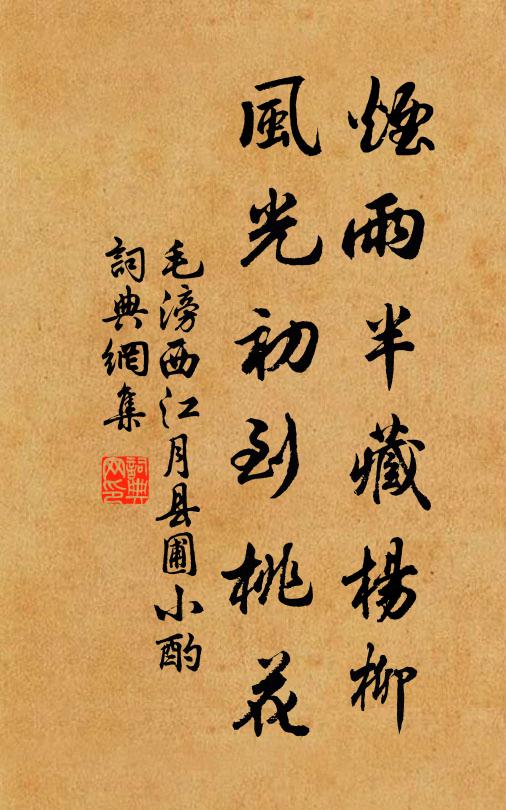 煙雨半藏楊柳
風光初到桃花
毛滂西江月县圃小酌
詞典網集
詞典
网印